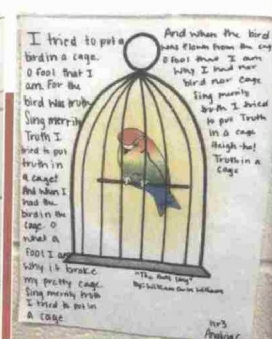 I tried to put a
bird in a cage.
O fool that I
am. For the
bird was truth
Sing merrily
Truth I
tried to put
truth in
a cage!
And when I
had the
bird in the
cage. O
what a
fool I am
Why it broke
my pretty cage
Sing merrily truth
I tried to put in
a cage
And when the bird
was flown from the cage
O fool that I am
Why I had nor
bird nor cage
Sing merrily
truth I tried
to put Truth
in a cage
Heigh-ho!
Truth in a
cage
"The Fool's Song"
By: William Carlos Williams
hr3